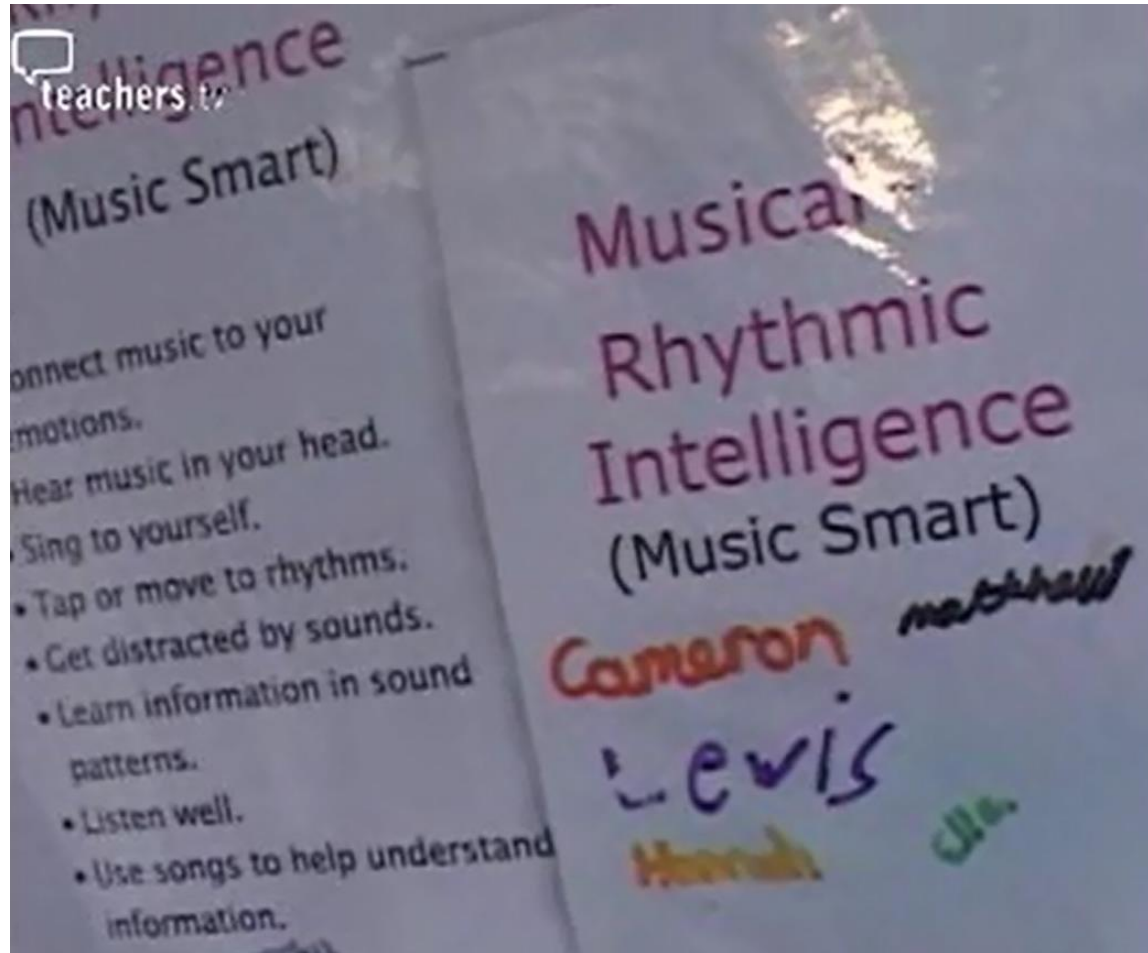 teachers.tv
Intelligence
(Music Smart)
onnect music to your
motions.
Hear music in your head.
• Sing to yourself.
• Tap or move to rhythms.
• Get distracted by sounds.
• Learn information in sound
patterns.
• Listen well.
• Use songs to help understand
information.
Musical
Rhythmic
Intelligence
(Music Smart)
Cameron matthew
Lewis
Hannah